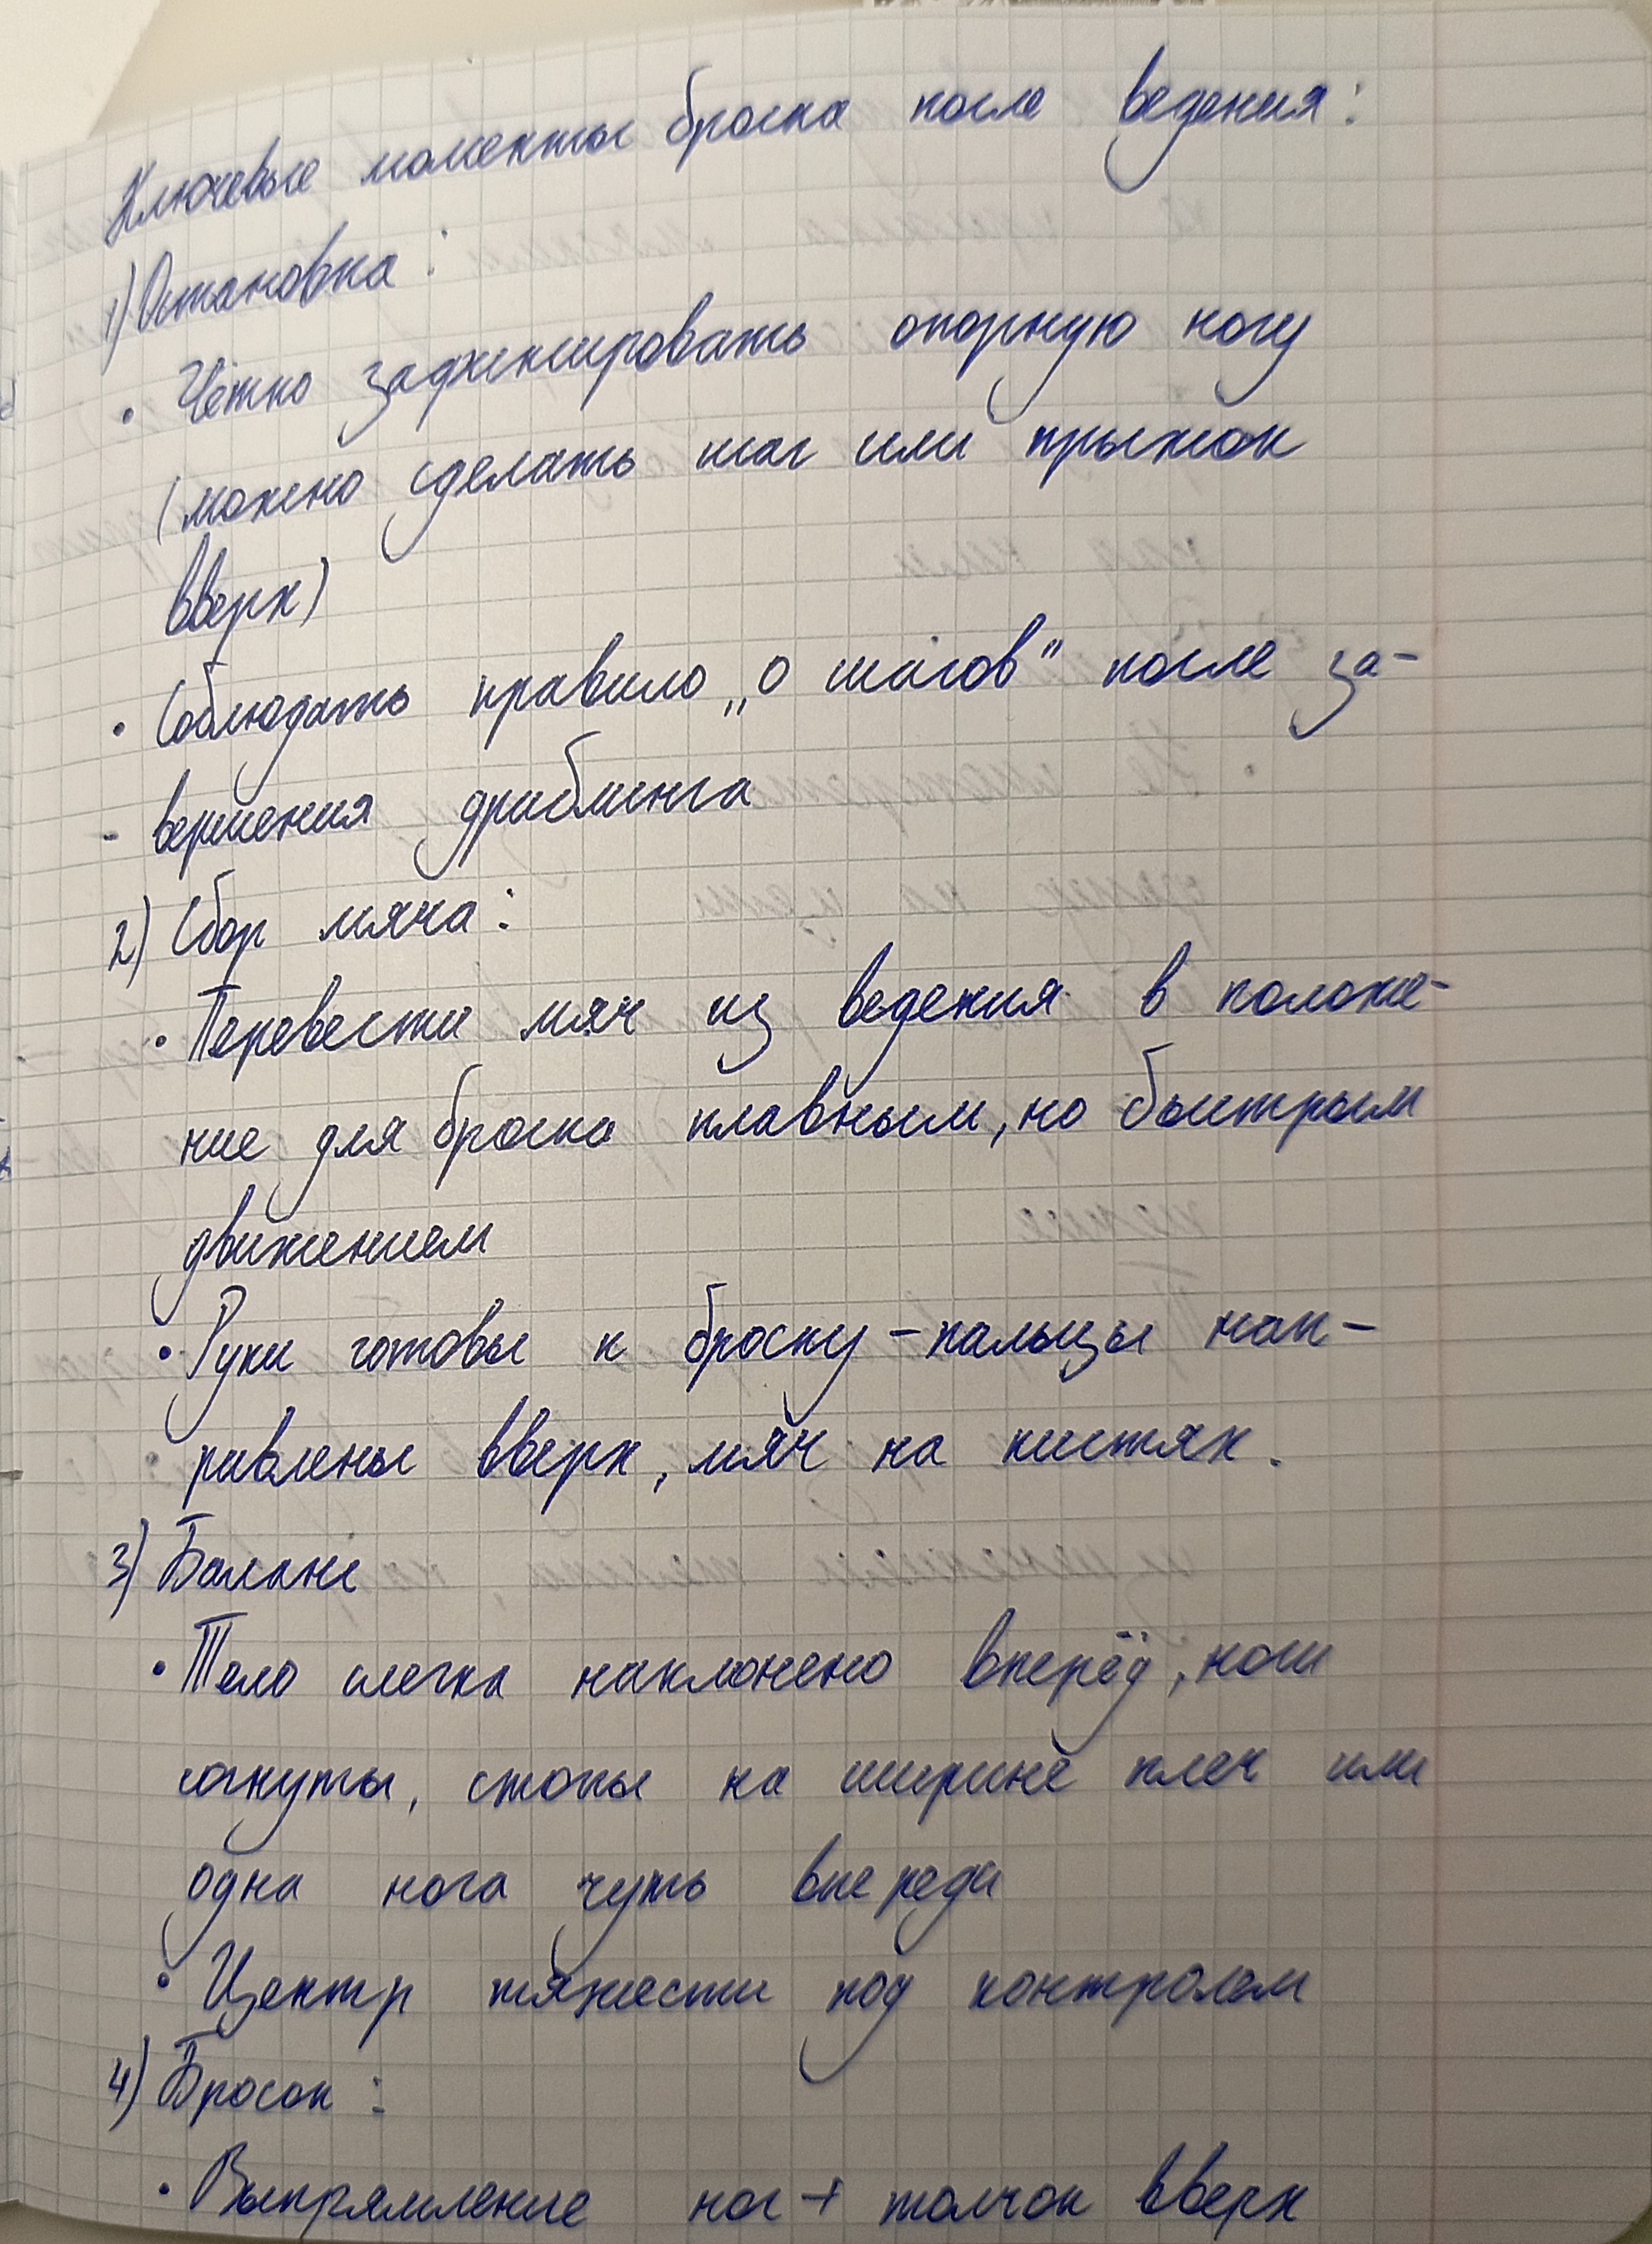 Ключевые моменты броска после ведения:
1) Остановка:
• Чётко зафиксировать опорную ногу
(можно сделать шаг или прыжок
вверх)
• Соблюдать правило „0 шагов" после за-
- вершения дриблинга
2) Сбор мяча:
• Перевести мяч из ведения в положе-
ние для броска плавным, но быстрым
движением
• Руки готовы к броску - пальцы нап-
равлены вверх, мяч на кистях.
3) Баланс
• Тело слегка наклонено вперёд, ноги
согнуты, стопы на ширине плеч или
одна нога чуть впереди
• Центр тяжести под контролем
4) Бросок:
• Выпрямление ног + толчок вверх